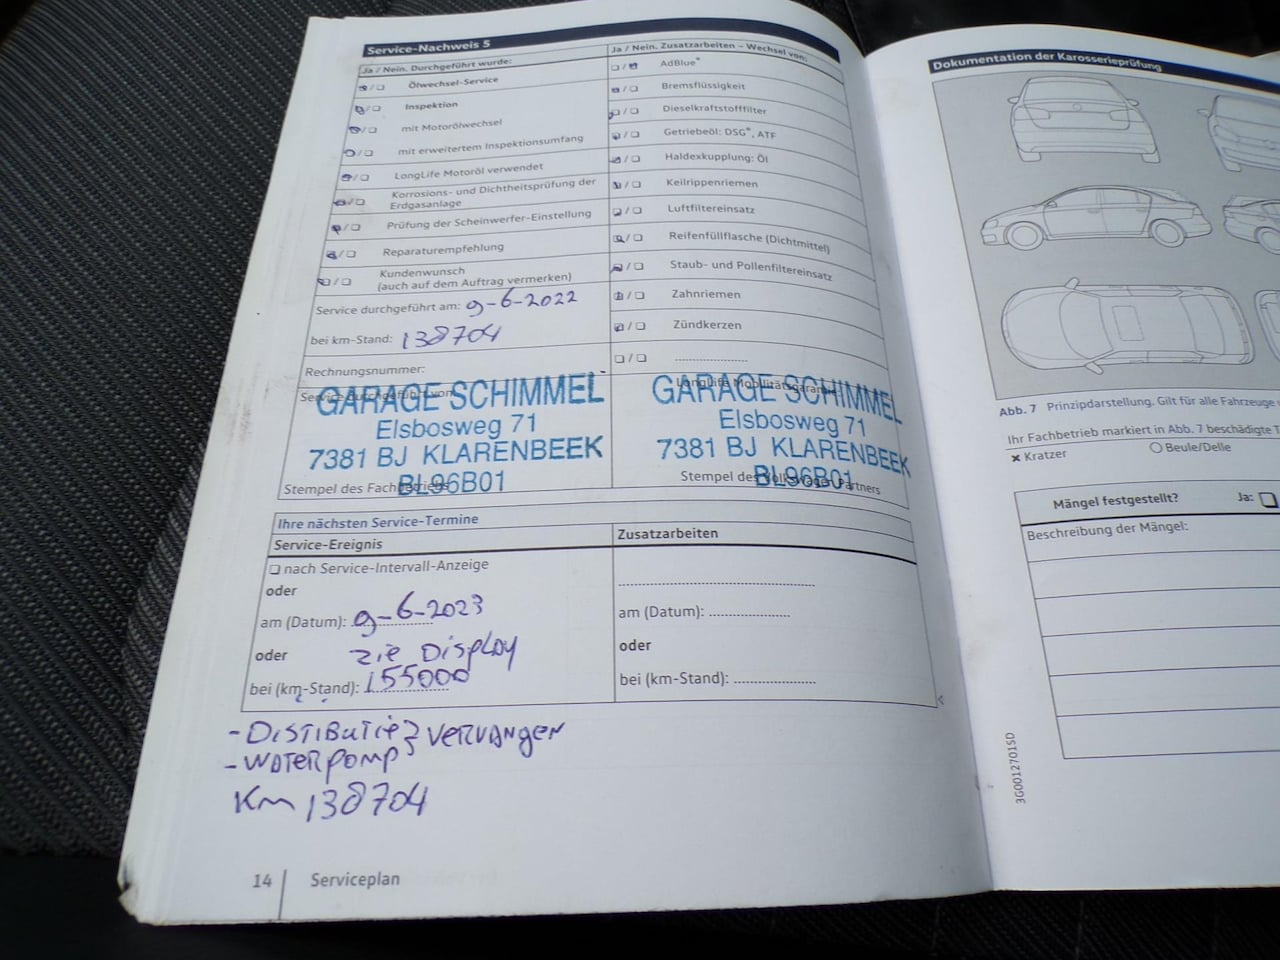 Service-Nachweis 5
Ja / Nein. Durchgeführt wurde:
Ölwechsel-Service
Inspektion
mit Motorölwechsel
mit erweitertem Inspektionsumfang
LongLife Motoröl verwendet
Korrosions- und Dichtheitsprüfung der
Erdgasanlage
Prüfung der Scheinwerfer-Einstellung
Reparaturempfehlung
Kundenwunsch
(auch auf dem Auftrag vermerken)
Service durchgeführt am: 9-6-2022
bei km-Stand: 138704
Rechnungsnummer:
Service durchgeführt von:
GARAGE SCHIMMEL
Elsbosweg 71
7381 BJ KLARENBEEK
BL96B01
Stempel des Fachbetriebs
Ja / Nein. Zusatzarbeiten – Wechsel von:
AdBlue®
Bremsflüssigkeit
Dieselkraftstofffilter
Getriebeöl: DSG®, ATF
Haldexkupplung: Öl
Keilrippenriemen
Luftfiltereinsatz
Reifenfüllflasche (Dichtmittel)
Staub- und Pollenfiltereinsatz
Zahnriemen
Zündkerzen
LongLife Mobilitätsgarantie
GARAGE SCHIMMEL
Elsbosweg 71
7381 BJ KLARENBEEK
BL96B01
Stempel des Volkswagen Partners
Ihre nächsten Service-Termine
Service-Ereignis
nach Service-Intervall-Anzeige
oder
am (Datum): 9-6-2023
oder zie Display
bei (km-Stand): 155000
Zusatzarbeiten
am (Datum):
oder
bei (km-Stand):
- DISTIBUTIE } VERVANGEN
- WATERPOMP
Km 138704
14 Serviceplan
Dokumentation der Karosserieprüfung
Abb. 7 Prinzipdarstellung. Gilt für alle Fahrzeuge
Ihr Fachbetrieb markiert in Abb. 7 beschädigte
Kratzer
Beule/Delle
Mängel festgestellt? Ja:
Beschreibung der Mängel:
3G0012701SD